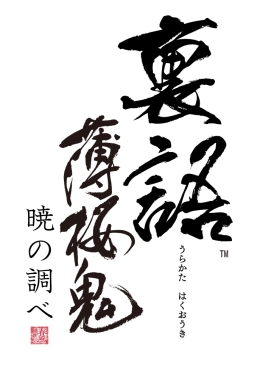 裏語
薄桜鬼
うらかた はくおうき
暁の調べ
TM